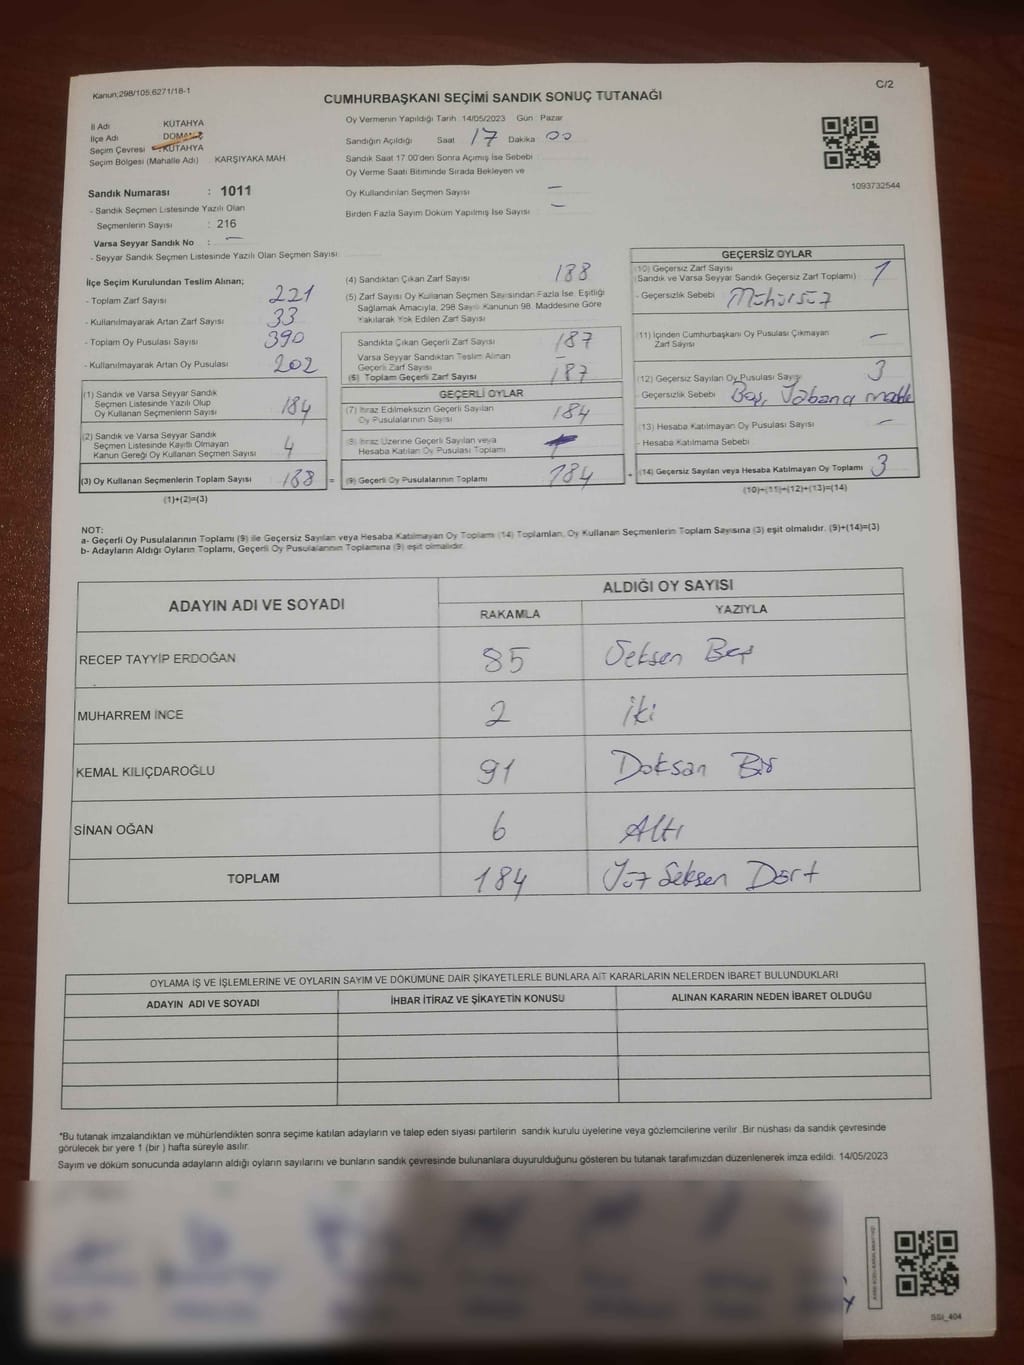 Kanun:298/105;6271/18-1
C/2
CUMHURBAŞKANI SEÇİMİ SANDIK SONUÇ TUTANAĞI
İl Adı KÜTAHYA
İlçe Adı
Seçim Çevresi : KÜTAHYA
Seçim Bölgesi (Mahalle Adı) KARŞIYAKA MAH
Sandık Numarası : 1011
- Sandık Seçmen Listesinde Yazılı Olan
Seçmenlerin Sayısı : 216
Varsa Seyyar Sandık No : —
- Seyyar Sandık Seçmen Listesinde Yazılı Olan Seçmen Sayısı:
Oy Vermenin Yapıldığı Tarih :14/05/2023 Gün : Pazar
Sandığın Açıldığı Saat 17 Dakika 00
Sandık Saat 17.00'den Sonra Açımış İse Sebebi
Oy Verme Saati Bitiminde Sırada Bekleyen ve
Oy Kullandırılan Seçmen Sayısı —
Birden Fazla Sayım Döküm Yapılmış İse Sayısı : —
1093732544
İlçe Seçim Kurulundan Teslim Alınan;
- Toplam Zarf Sayısı 221
- Kullanılmayarak Artan Zarf Sayısı 33
- Toplam Oy Pusulası Sayısı 390
- Kullanılmayarak Artan Oy Pusulası 202
(1) Sandık ve Varsa Seyyar Sandık
Seçmen Listesinde Yazılı Olup
Oy Kullanan Seçmenlerin Sayısı 184
(2) Sandık ve Varsa Seyyar Sandık
Seçmen Listesinde Kayıtlı Olmayan
Kanun Gereği Oy Kullanan Seçmen Sayısı 4
(3) Oy Kullanan Seçmenlerin Toplam Sayısı 188 =
(1)+(2)=(3)
(4) Sandıktan Çıkan Zarf Sayısı 188
(5) Zarf Sayısı Oy Kullanan Seçmen Sayısından Fazla İse, Eşitliği
Sağlamak Amacıyla; 298 Sayılı Kanunun 98. Maddesine Göre
Yakılarak Yok Edilen Zarf Sayısı
Sandıkta Çıkan Geçerli Zarf Sayısı 187
Varsa Seyyar Sandıktan Teslim Alınan
Geçerli Zarf Sayısı —
(6) Toplam Geçerli Zarf Sayısı 187
GEÇERLİ OYLAR
(7) İtiraz Edilmeksizin Geçerli Sayılan
Oy Pusulalarının Sayısı 184
(8) İtiraz Üzerine Geçerli Sayılan veya
Hesaba Katılan Oy Pusulası Toplamı
(9) Geçerli Oy Pusulalarının Toplamı 184 +
GEÇERSİZ OYLAR
(10) Geçersiz Zarf Sayısı
(Sandık ve Varsa Seyyar Sandık Geçersiz Zarf Toplamı) 1
- Geçersizlik Sebebi Mühürsüz
(11) İçinden Cumhurbaşkanı Oy Pusulası Çıkmayan
Zarf Sayısı —
(12) Geçersiz Sayılan Oy Pusulası Sayısı 3
- Geçersizlik Sebebi Boş, Yabancı madde
(13) Hesaba Katılmayan Oy Pusulası Sayısı —
- Hesaba Katılmama Sebebi
(14) Geçersiz Sayılan veya Hesaba Katılmayan Oy Toplamı 3
(10)+(11)+(12)+(13)=(14)
NOT:
a- Geçerli Oy Pusulalarının Toplamı (9) ile Geçersiz Sayılan veya Hesaba Katılmayan Oy Toplamı (14) Toplamları, Oy Kullanan Seçmenlerin Toplam Sayısına (3) eşit olmalıdır. (9)+(14)=(3)
b- Adayların Aldığı Oyların Toplamı, Geçerli Oy Pusulalarının Toplamına (9) eşit olmalıdır.
ADAYIN ADI VE SOYADI ALDIĞI OY SAYISI
RAKAMLA YAZIYLA
RECEP TAYYİP ERDOĞAN 85 Seksen Beş
MUHARREM İNCE 2 İki
KEMAL KILIÇDAROĞLU 91 Doksan Bir
SİNAN OĞAN 6 Altı
TOPLAM 184 Yüz Seksen Dört
OYLAMA İŞ VE İŞLEMLERİNE VE OYLARIN SAYIM VE DÖKÜMÜNE DAİR ŞİKAYETLERLE BUNLARA AİT KARARLARIN NELERDEN İBARET BULUNDUKLARI
ADAYIN ADI VE SOYADI İHBAR İTİRAZ VE ŞİKAYETİN KONUSU ALINAN KARARIN NEDEN İBARET OLDUĞU
*Bu tutanak imzalandıktan ve mühürlendikten sonra seçime katılan adayların ve talep eden siyasi partilerin sandık kurulu üyelerine veya gözlemcilerine verilir. Bir nüshası da sandık çevresinde
görülecek bir yere 1 (bir ) hafta süreyle asılır.
Sayım ve döküm sonucunda adayların aldığı oyların sayılarını ve bunların sandık çevresinde bulunanlara duyurulduğunu gösteren bu tutanak tarafımızdan düzenlenerek imza edildi. 14/05/2023
SSI_404